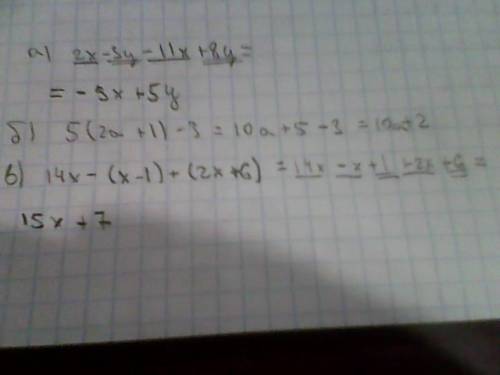 а) 2x-3y-11x+8y=
= -9x+5y
б) 5(2a+1)-3=10a+5-3=10a+2
в) 14x-(x-1)+(2x+6)=14x-x+1+2x+6=
15x+7